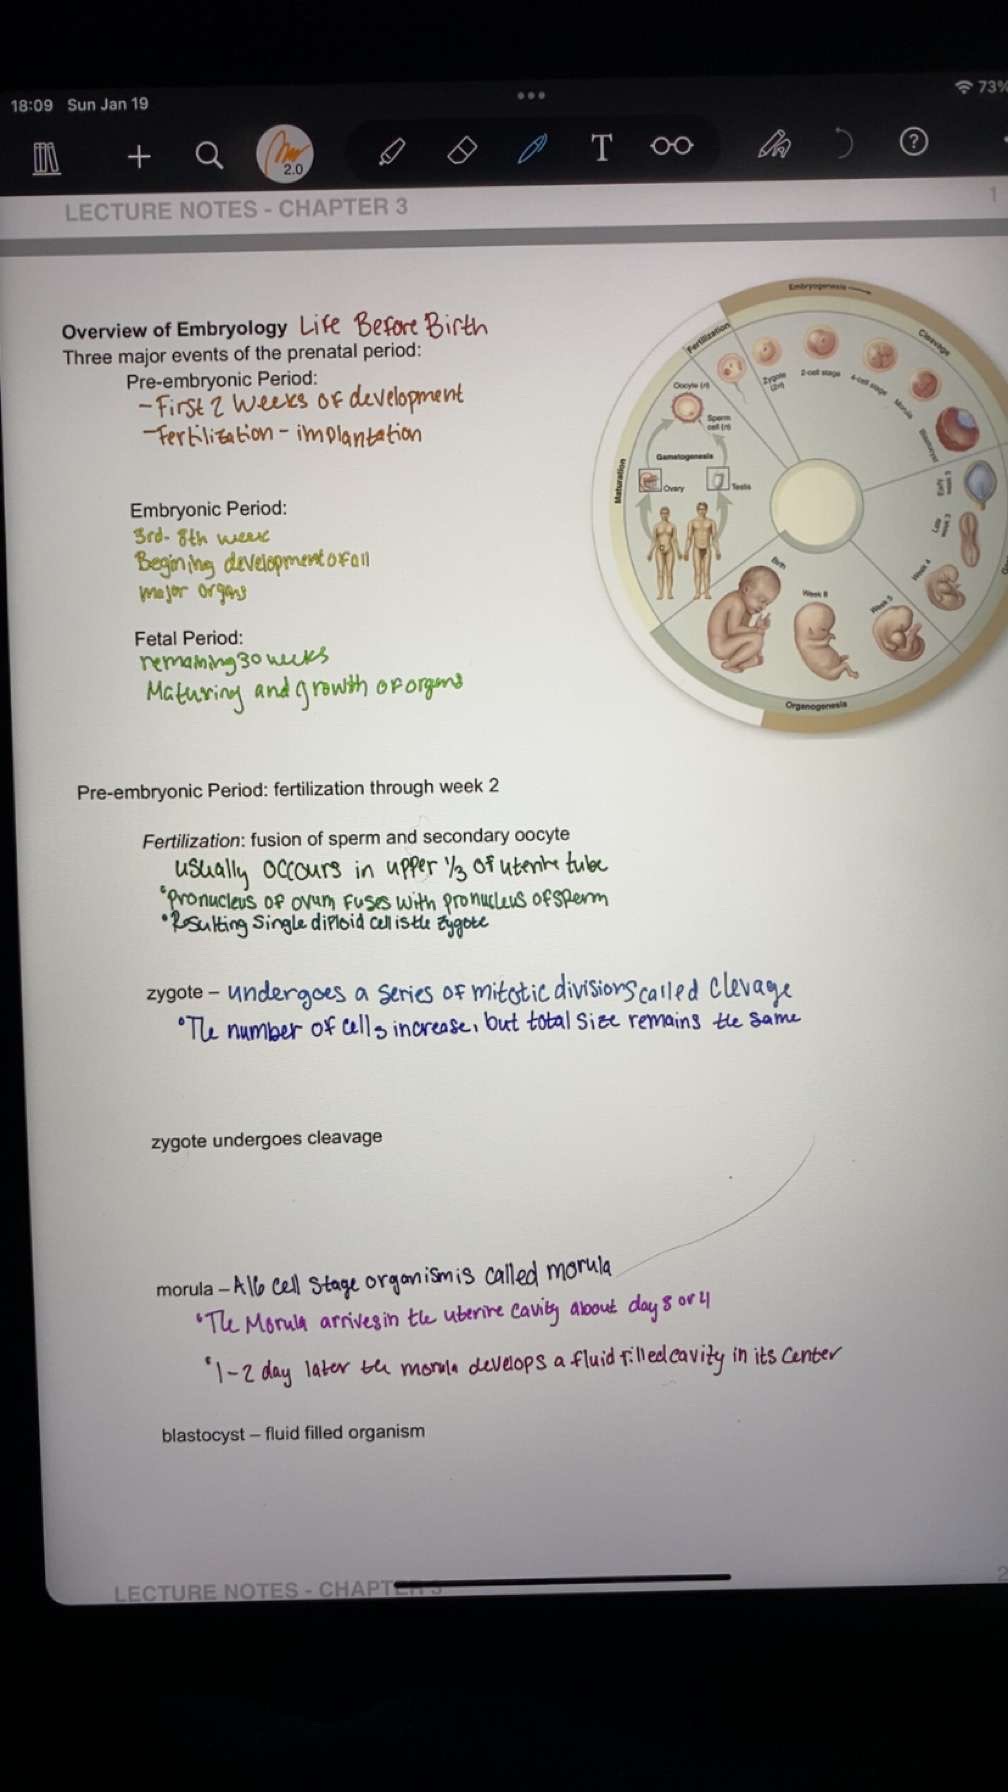 18:09 Sun Jan 19
73%
2.0
T
?
LECTURE NOTES - CHAPTER 3
1
Overview of Embryology Life Before Birth
Three major events of the prenatal period:
Pre-embryonic Period:
-First 2 weeks of development
-Fertilization - implantation
Embryonic Period:
3rd- 8th week
Begining development of all
major organs
Fetal Period:
remaining 30 weeks
Maturing and growth of organs
Embryogenesis
Cleavage
Fertilization
Zygote (2n)
2-cell stage
4-cell stage
Morula
Blastocyst
Oocyte (n)
Sperm cell (n)
Gametogenesis
Ovary
Testis
Maturation
Early week 3
Late week 3
Week 4
Week 5
Week 8
Birth
Organogenesis
Pre-embryonic Period: fertilization through week 2
Fertilization: fusion of sperm and secondary oocyte
usually occours in upper 1/3 of uterine tube
•Pronucleus of ovum fuses with pronucleus of sperm
•Resulting single diploid cell is the zygote
zygote – undergoes a series of mitotic divisions called clevage
•The number of cells increase, but total size remains the same
zygote undergoes cleavage
morula – A 16 cell stage organism is called morula
•The Morula arrives in the uterine cavity about day 3 or 4
•1-2 day later the morula develops a fluid filled cavity in its center
blastocyst – fluid filled organism
LECTURE NOTES - CHAPTER 3
2